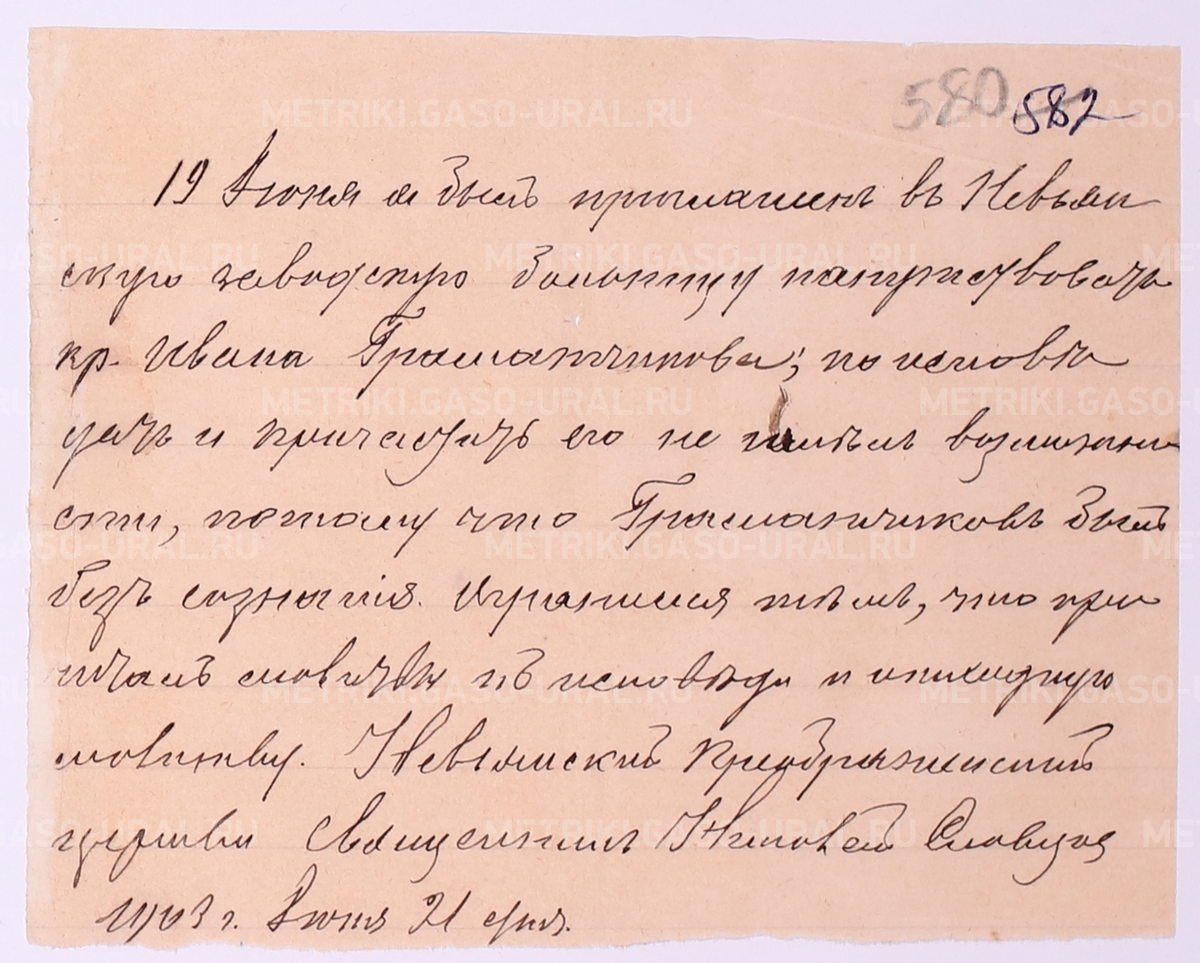 580 582
19 Июня я былъ приглашенъ въ Невьян
скую заводскую больницу напутствовать
кр. Ивана Граматчикова; но исповѣ
дать и причастить его не имѣлъ возможно
сти, потому что Граматчиковъ былъ
безъ сознанія. Ограничился тѣмъ, что про
читалъ молитвы къ исповѣди и отходную
молитву. Невьянской Преображенской
церкви Священникъ Словцов
1903 г. Июня 21 дня.
METRIKI.GASO-URAL.RU